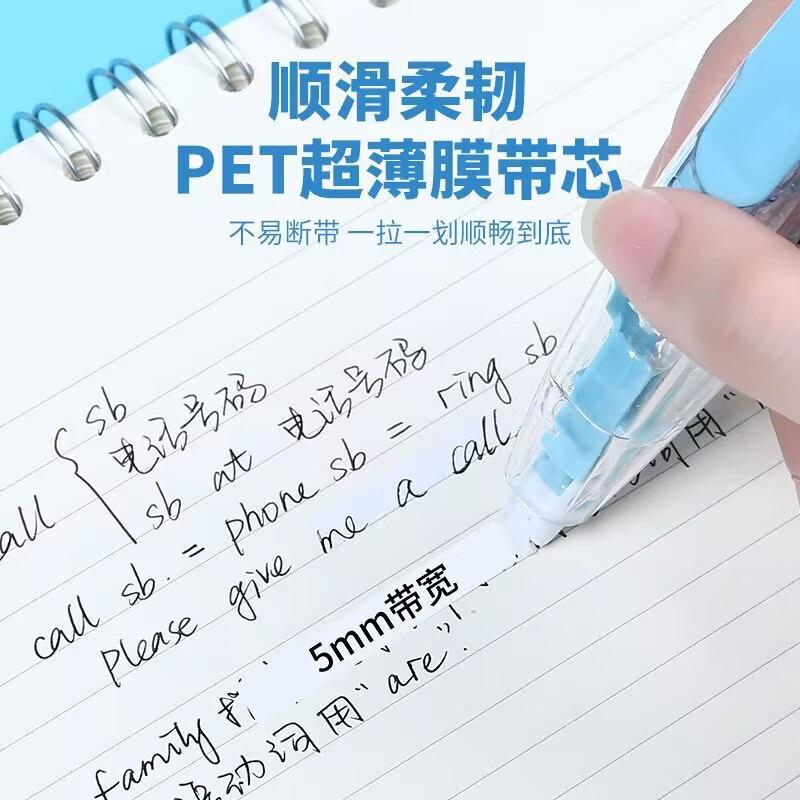 顺滑柔韧
PET超薄膜带芯
不易断带 一拉一划顺畅到底
sb
电话号码
call sb at 电话号码
call sb. = phone sb = ring sb
please give me a call.
5mm带宽
family
动词用"are.
词用"